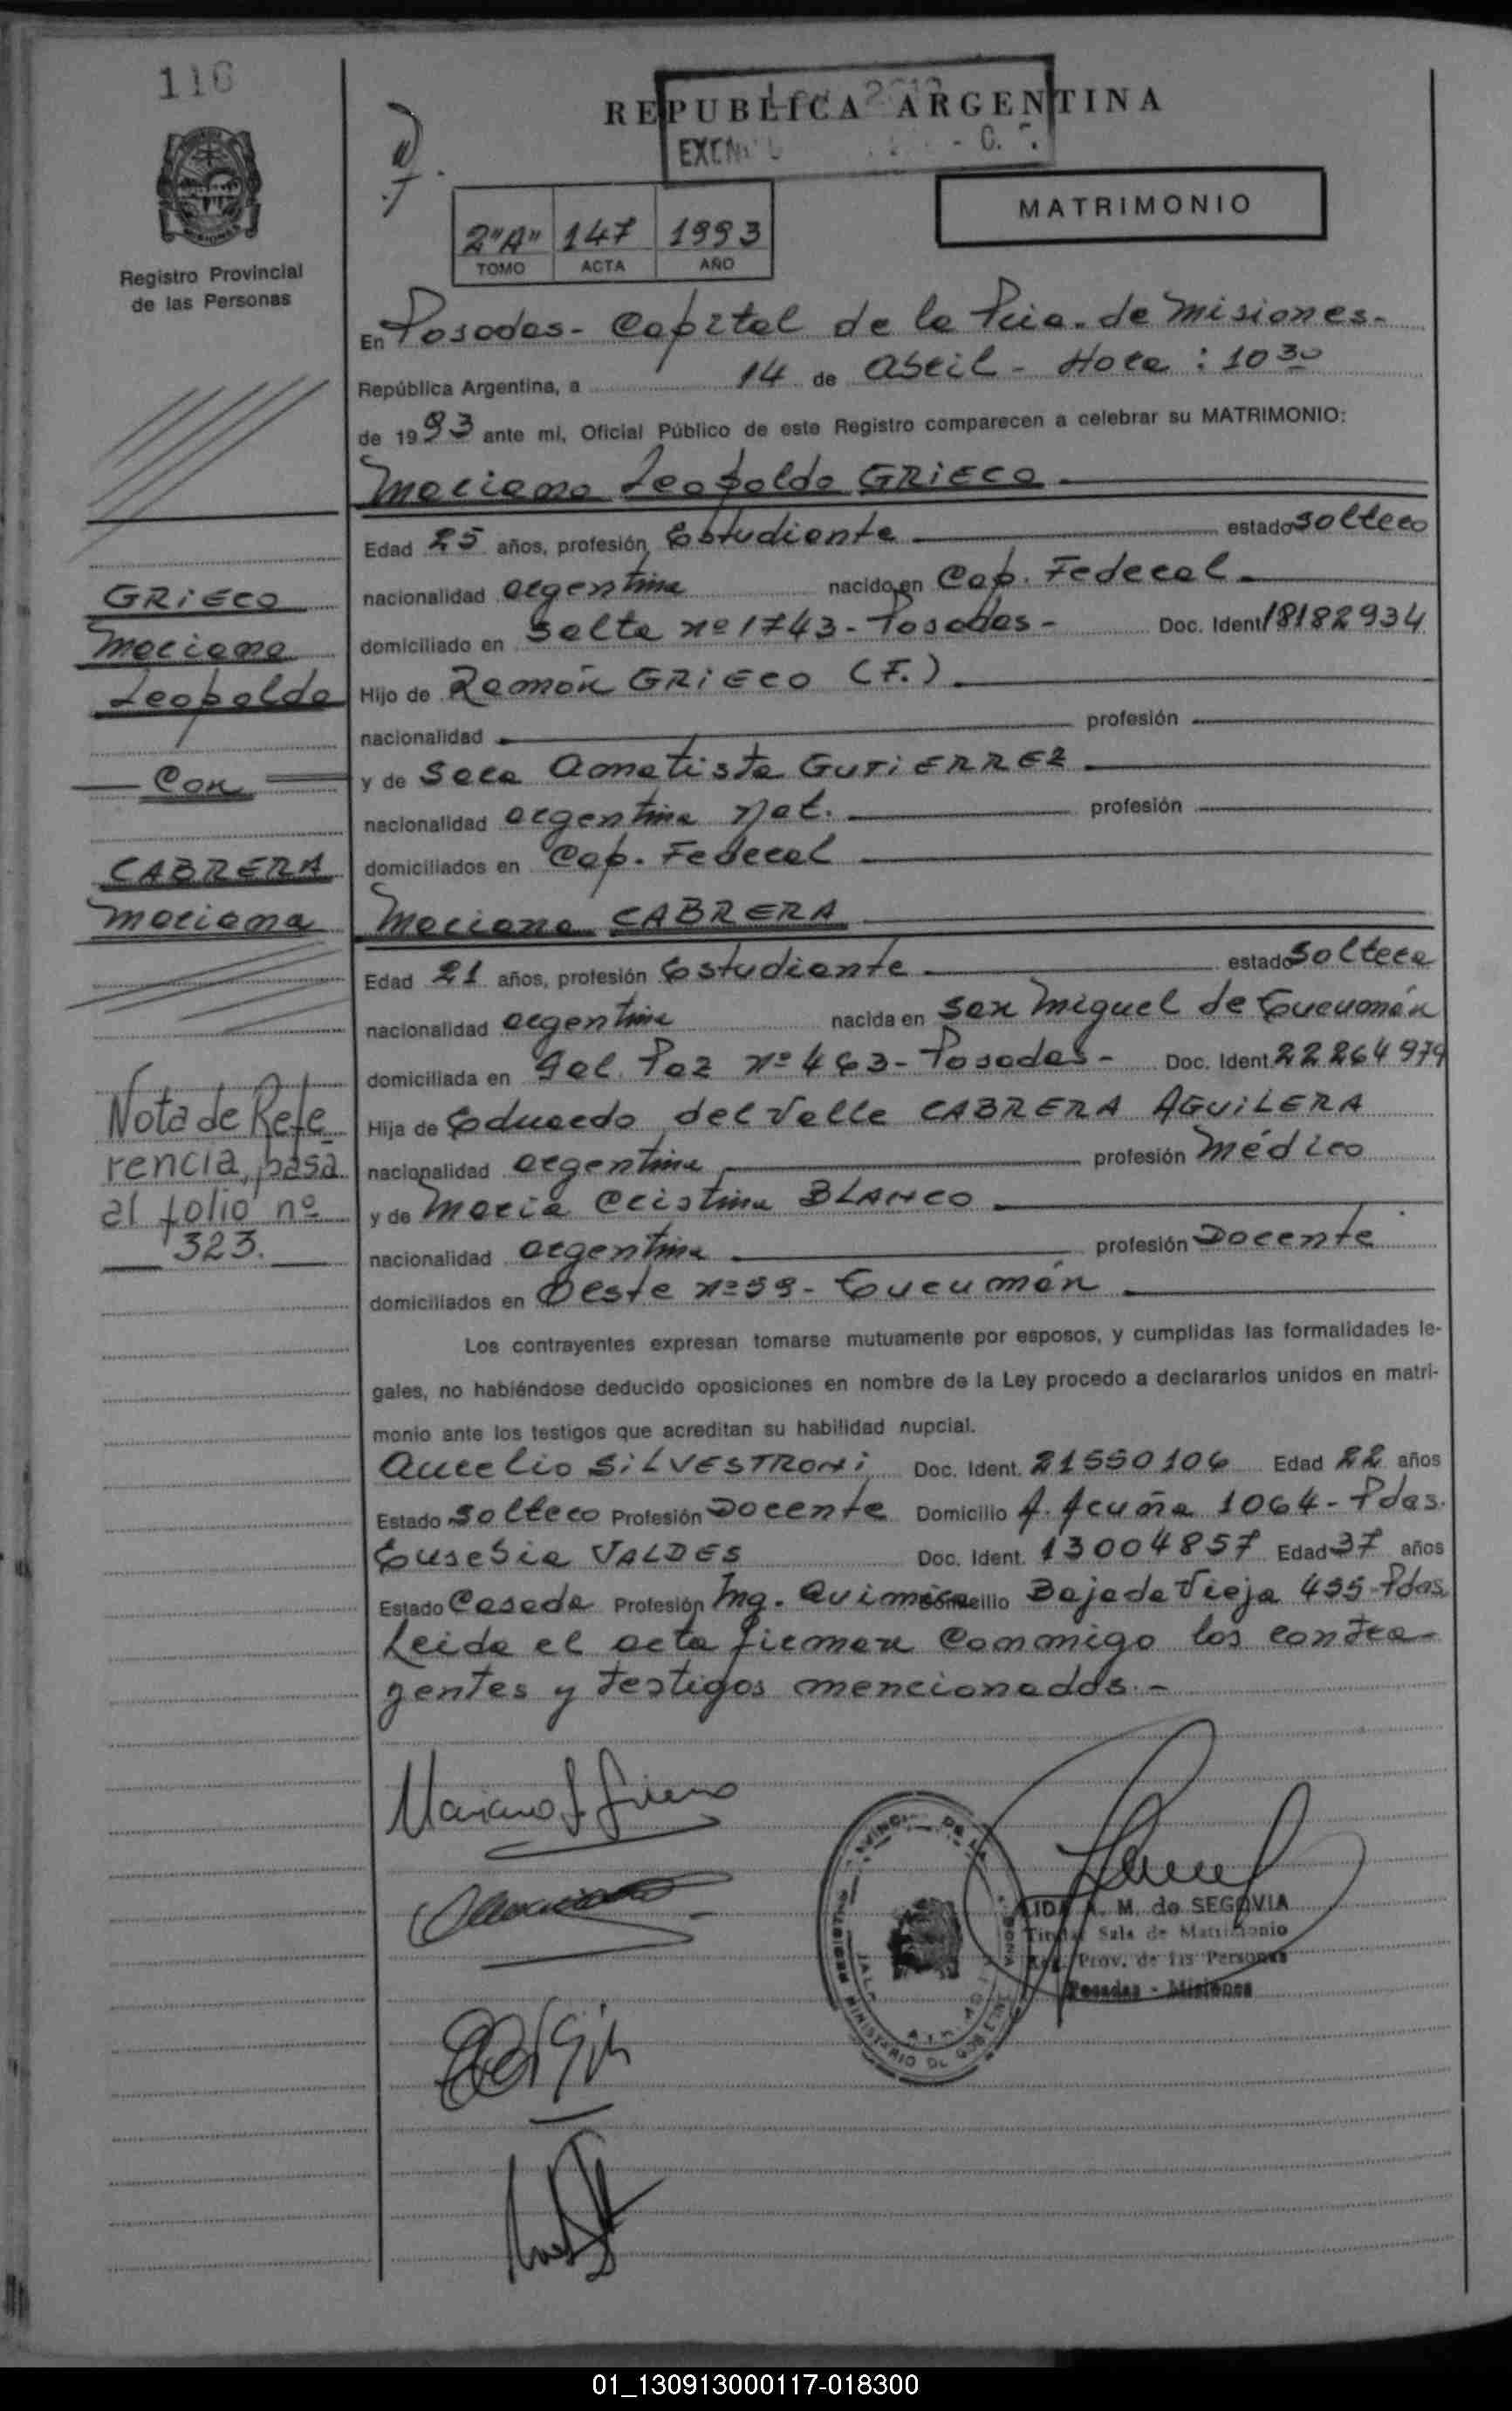 116
REPUBLICA ARGENTINA
MATRIMONIO
2"A" 147 1993
TOMO ACTA AÑO
Registro Provincial
de las Personas
En Posadas - Capital de la Pcia. de Misiones.-
República Argentina, a 14 de Abril - Hora: 10 30
de 1993 ante mi, Oficial Público de este Registro comparecen a celebrar su MATRIMONIO:
Mariano Leopoldo GRIECO
Edad 25 años, profesión Estudiante estado soltero
nacionalidad argentina nacido en Cap. Federal
domiciliado en Salta nº 1743 - Posadas - Doc. Ident 18182934
Hijo de Ramón GRIECO (F.)
nacionalidad profesión
y de Sara Amatista GUTIERREZ
nacionalidad argentina nat. profesión
domiciliados en Cap. Federal
GRIECO
Mariano
Leopoldo
Con
CABRERA
Mariana
Mariana CABRERA
Edad 21 años, profesión Estudiante estado soltera
nacionalidad argentina nacida en San Miguel de Tucumán
domiciliada en Gel. Paz nº 463 - Posadas - Doc. Ident. 22264979
Hija de Eduardo del Valle CABRERA AGUILERA
nacionalidad argentina profesión Médico
y de María Cristina BLANCO
nacionalidad argentina profesión Docente
domiciliados en Oeste nº 99 - Tucumán
Nota de Refe
rencia, pasa
al folio nº
323.
Los contrayentes expresan tomarse mutuamente por esposos, y cumplidas las formalidades le-
gales, no habiéndose deducido oposiciones en nombre de la Ley procedo a declararlos unidos en matri-
monio ante los testigos que acreditan su habilidad nupcial.
Aurelio SILVESTRONI Doc. Ident. 21550106 Edad 22 años
Estado Soltero Profesión Docente Domicilio A. Acuña 1064 - Pdas.
Eusebia VALDES Doc. Ident. 13004857 Edad 37 años
Estado Casada Profesión Ing. Química Domicilio Bajada Vieja 455 - Pdas
Leida el acta firman conmigo los contra-
yentes y testigos mencionados. -
Mariano L. Grieco
A. M. de SEGOVIA
Titular Sala de Matrimonio
Reg. Prov. de las Personas
Posadas - Misiones
01_130913000117-018300